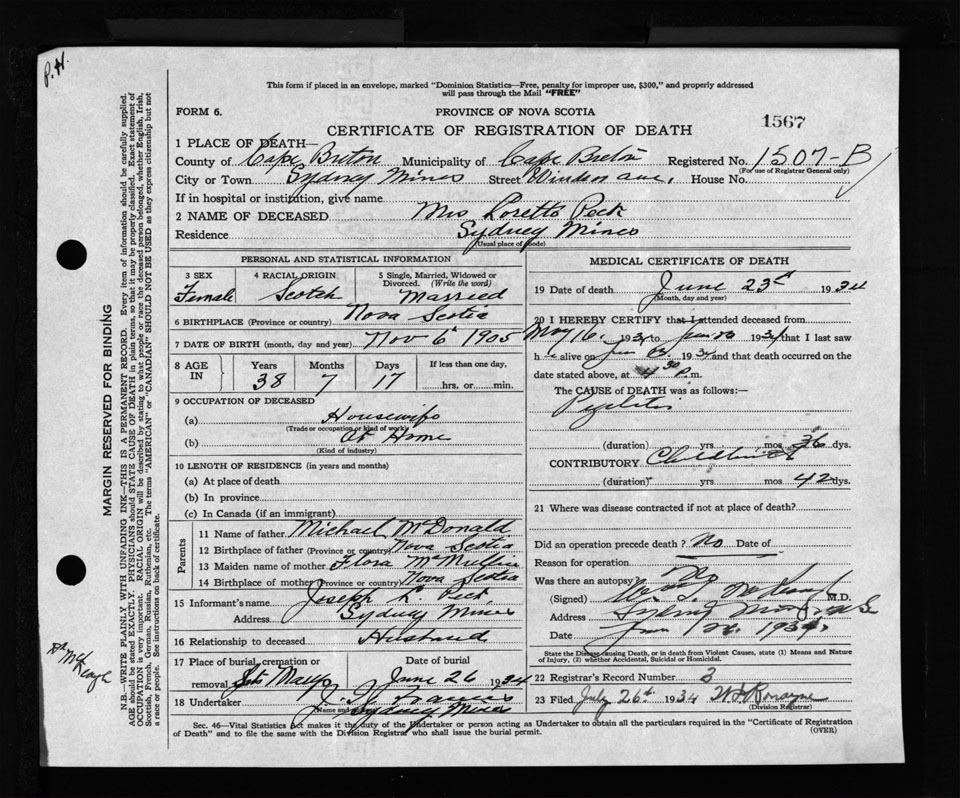 P.H.
This form if placed in an envelope, marked "Dominion Statistics—Free, penalty for improper use, $300," and properly addressed
will pass through the Mail "FREE"
FORM 6.
PROVINCE OF NOVA SCOTIA
CERTIFICATE OF REGISTRATION OF DEATH
1567
1 PLACE OF DEATH—
County of Cape Breton Municipality of Cape Breton Registered No. 1507-B
(For use of Registrar General only)
City or Town Sydney Mines Street Windsor ave, House No.
If in hospital or institution, give name
2 NAME OF DECEASED Mrs Loretto Peck
Residence Sydney Mines
(Usual place of abode)
PERSONAL AND STATISTICAL INFORMATION
3 SEX Female
4 RACIAL ORIGIN Scotch
5 Single, Married, Widowed or Divorced. (Write the word) Married
6 BIRTHPLACE (Province or country) Nova Scotia
7 DATE OF BIRTH (month, day and year) Nov 6 1905
8 AGE IN Years 38 Months 7 Days 17 If less than one day, hrs. or min.
9 OCCUPATION OF DECEASED
(a) Housewife
(Trade or occupation or kind of work)
(b) At Home
(Kind of industry)
10 LENGTH OF RESIDENCE (in years and months)
(a) At place of death
(b) In province
(c) In Canada (if an immigrant)
Parents
11 Name of father Michael McDonald
12 Birthplace of father (Province or country) Nova Scotia
13 Maiden name of mother Flora McMullin
14 Birthplace of mother (Province or country) Nova Scotia
15 Informant's name Joseph Peck
Address Sydney Mines
16 Relationship to deceased Husband
17 Place of burial, cremation or removal Date of burial June 26 1934
18 Undertaker
Sydney Mines
MEDICAL CERTIFICATE OF DEATH
19 Date of death June 23d 1934
(Month, day and year)
20 I HEREBY CERTIFY that I attended deceased from
May 16. 1934 to 1934 that I last saw
h alive on 1934 and that death occurred on the
date stated above, at 4 30 P.m.
The CAUSE OF DEATH was as follows:—
Pyelitis
(duration) yrs mos 36 dys.
CONTRIBUTORY Childbirth
(duration) yrs mos 42 dys.
21 Where was disease contracted if not at place of death?
Did an operation precede death? No Date of
Reason for operation
Was there an autopsy? No
(Signed) M.D.
Address Sydney Mines N.S.
Date 1934
State the Disease causing Death, or in death from Violent Causes, state (1) Means and Nature
of Injury, (2) whether Accidental, Suicidal or Homicidal.
22 Registrar's Record Number 3
23 Filed July 26th 1934
(Division Registrar)
Sec. 46—Vital Statistics Act makes it the duty of the Undertaker or person acting as Undertaker to obtain all the particulars required in the "Certificate of Registration
of Death" and to file the same with the Division Registrar who shall issue the burial permit.
(OVER)
MARGIN RESERVED FOR BINDING
N.B.—WRITE PLAINLY WITH UNFADING INK—THIS IS A PERMANENT RECORD. Every item of information should be carefully supplied.
AGE should be stated EXACTLY. PHYSICIANS should STATE CAUSE OF DEATH in plain terms, so that it may be properly classified. Exact statement of
OCCUPATION is very important. RACIAL ORIGIN will be described by stating to what people or race the deceased person belonged, whether English, Irish,
Scottish, French, German, Russian, Ruthenian, etc. The terms "AMERICAN" or "CANADIAN" SHOULD NOT BE USED as they express citizenship but not
a race or people. See instructions on back of certificate.
Dr McKeough